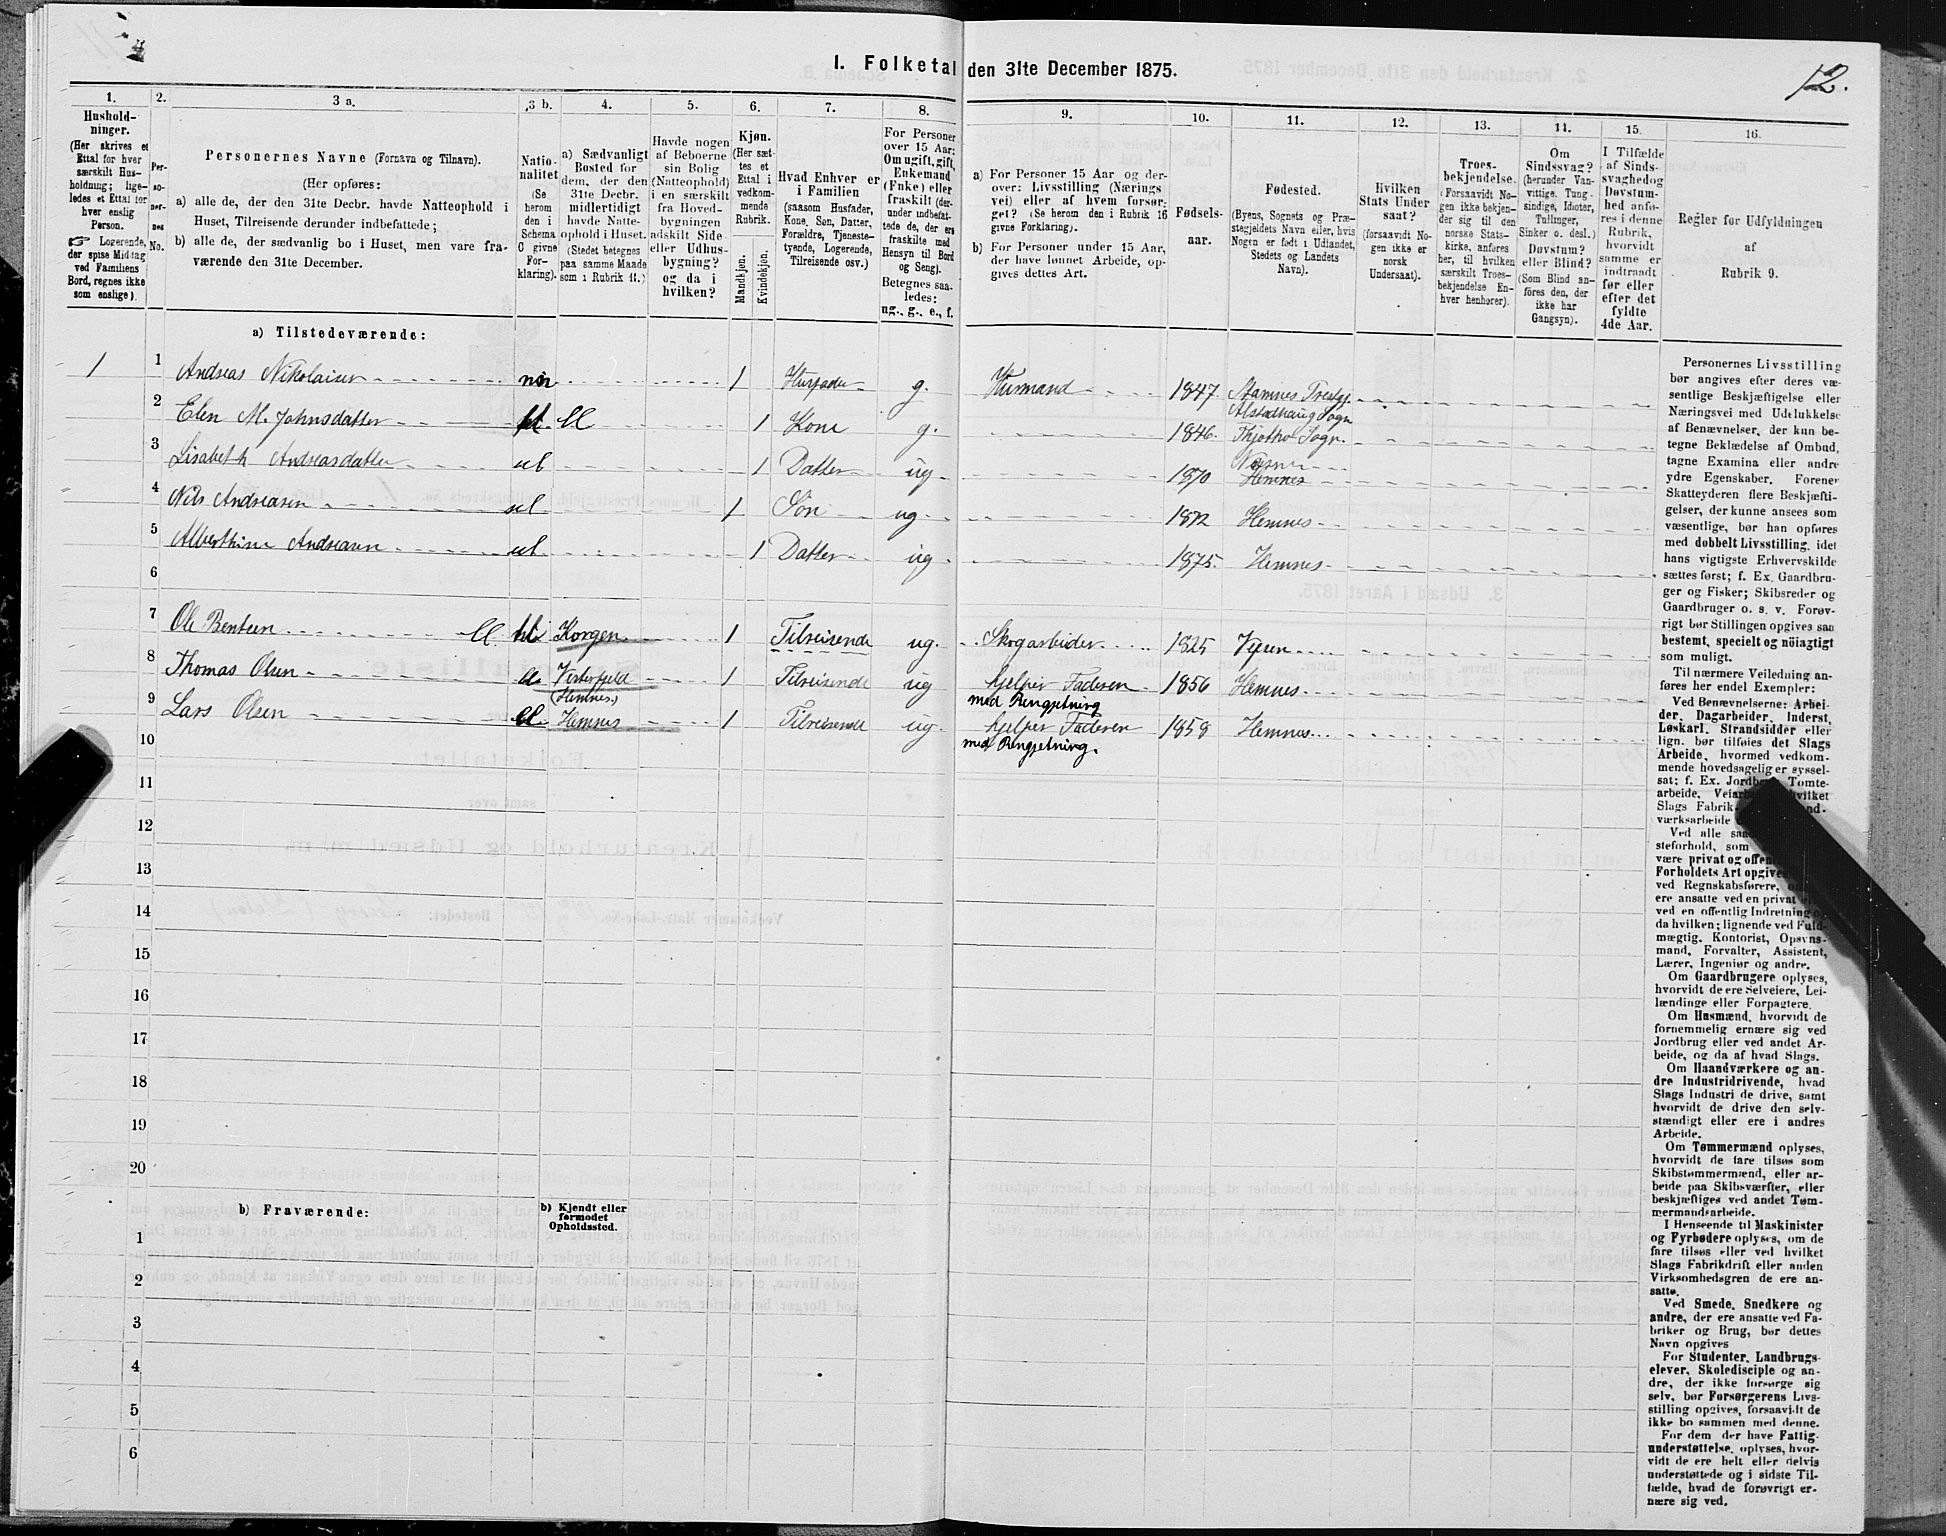 I. Folketal den 31te December 1875.
12.
1.
Hushold-
ninger.
(Her skrives et
Ettal for hver
særskilt Hus-
holdning; lige-
ledes et Ettal for
hver enslig
Person.
☞ Logerende,
der spise Middag
ved Familiens
Bord, regnes ikke
som enslige).
2.
Per-
so-
ner-
nes
No.
3 a.
Personernes Navne (Fornavn og Tilnavn).
(Her opføres:
a) alle de, der den 31te Decbr. havde Natteophold i
Huset, Tilreisende derunder indbefattede;
b) alle de, der sædvanlig bo i Huset, men vare fra-
værende den 31te December.
3 b.
Natio-
nalitet
(Se
herom
den i
Schema
C givne
For-
klaring).
4.
a) Sædvanligt
Bosted for
dem, der den
31te Decbr.
midlertidigt
havde Natte-
ophold i Huset.
(Stedet betegnes
paa samme Maade
som i Rubrik 11.)
5.
Havde nogen
af Beboerne
sin Bolig
(Natteophold)
i en særskilt
fra Hoved-
bygningen
adskilt Side-
eller Udhus-
bygning?
og da i
hvilken?
6.
Kjøn.
(Her sæt-
tes et
Ettal i
vedkom-
mende
Rubrik.
Mandkjøn.
Kvindekjøn.
7.
Hvad Enhver er
i Familien
(saasom Husfader,
Kone, Søn, Datter,
Forældre, Tjeneste-
tyende, Logerende,
Tilreisende osv.)
8.
For Personer
over 15 Aar:
Om ugift, gift,
Enkemand
(Enke) eller
fraskilt (der-
under indbefat-
tede de, der ere
fraskilte med
Hensyn til Bord
og Seng).
Betegnes saa-
ledes:
ug., g., e., f.
9.
a) For Personer 15 Aar og der-
over: Livsstilling (Nærings
vei) eller af hvem forsør-
get? (Se herom den i Rubrik 16
givne Forklaring).
b) For Personer under 15 Aar,
der have lønnet Arbeide, op-
gives dettes Art.
10.
Fødsels-
aar.
11.
Fødested.
(Byens, Sognets og Præ-
stegjeldets Navn eller, hvis
Nogen er født i Udlandet,
Stedets og Landets
Navn).
12.
Hvilken
Stats Under
saat?
(forsaavidt No-
gen ikke er
norsk
Undersaat).
13.
Troes-
bekjendelse.
(Forsaavidt No-
gen ikke bekjen-
der sig til den
norske Stats-
kirke, anføres
her, til hvilken
særskilt Troes-
bekjendelse En-
hver henhører).
14.
Om
Sindssvag?
(herunder Van-
vittige, Tung-
sindige, Idioter,
Tullinger,
Sinker o. desl.)
Døvstum?
eller Blind?
(Som Blind an-
føres den, der
ikke har
Gangsyn).
15.
I Tilfælde
af Sinds-
svaghed og
Døvstum-
hed anfø-
res i denne
Rubrik,
hvorvidt
samme er
indtraadt
før eller
efter det
fyldte
4de Aar.
16.
Regler for Udfyldningen
af
Rubrik 9.
a) Tilstedeværende:
1 1 Andreas Nikolaisen 1 Husfader g. Husmand 1847 Stamnes Prestgj.
Alstadhaug Sogn
2 Elen M. Johnsdatter 1 Kone g. 1846 Thjøtho Sogn
3 Lisabeth Andreasdatter 1 Datter ug 1870 Hemnes
4 Nils Andreasen 1 Søn ug 1872 Hemnes
5 Alberthine Andreasen 1 Datter ug 1875 Hemnes
6
7 Ole Bentsen Korgen 1 Tilreisende ug. Skogarbeider 1825
8 Thomas Olsen Vesterfjeld 1 Tilreisende ug hjelper Faderen 1856 Hemnes
(Hemnes) med Rengjetning
9 Lars Olsen Hemnes 1 Tilreisende ug. hjelper Faderen 1858 Hemnes
med Rengjetning.
10
11
12
13
14
15
16
17
18
19
20
b) Fraværende:
b) Kjendt eller
formodet
Opholdssted.
1
2
3
4
5
6
Personernes Livsstilling
bør angives efter deres væ-
sentlige Beskjæftigelse eller
Næringsvei med Udelukkelse
af Benævnelser, der kun be-
tegne Beklædelse af Ombud,
tagne Examina eller andre
ydre Egenskaber. Forener
Skatteyderen flere Beskjæfti-
gelser, der kunne ansees som
væsentlige, bør han opføres
med dobbelt Livsstilling, idet
hans vigtigste Erhvervskilde
sættes først; f. Ex. Gaardbru-
ger og Fisker; Skibsreder og
Gaardbruger o. s. v. Forøv-
rigt bør Stillingen opgives saa
bestemt, specielt og nøiagtigt
som muligt.
Til nærmere Veiledning an-
føres her endel Exempler:
Ved Benævnelserne: Arbei-
der, Dagarbeider, Inderst,
Løskarl, Strandsidder eller
lign. bør tilføies det Slags
Arbeide, hvormed vedkom-
mende hovedsagelig er syssel-
sat; f. Ex. Tomte-
arbeide, hvilket
Slags
værksarbeide
Ved alle
steforhold, som
være privat og
Forholdets Art
ved Regnskabsførere,
ere ansatte ved en privat
ved en offentlig Indretning
da hvilken; lignende ved Fuld-
mægtig, Kontorist, Opsyns-
mand, Forvalter, Assistent,
Lærer, Ingeniør og andre.
Om Gaardbrugere oplyses,
hvorvidt de ere Selveiere, Lei-
lændinge eller Forpagtere.
Om Husmænd, hvorvidt de
fornemmelig ernære sig ved
Jordbrug eller ved andet Ar-
beide, og da af hvad Slags.
Om Haandværkere og an-
dre Industridrivende, hvad
Slags Industri de drive, samt
hvorvidt de drive den selv-
stændigt eller ere i andres
Arbeide.
Om Tømmermænd oplyses,
hvorvidt de fare tilsøs som
Skibstømmermænd, eller ar-
beide paa Skibsværfter, eller
beskjæftiges ved andet Tøm-
mermandsarbeide.
I Henseende til Maskinister
og Fyrbødere oplyses, om de
fare tilsøs eller ved hvilket
Slags Fabrikdrift eller anden
Virksomhedsgren de ere an-
satte.
Ved Smede, Snedkere og
andre, der ere ansatte ved Fa-
briker og Brug, bør dettes
Navn opgives
For Studenter, Landbrugs-
elever, Skoledisciple og an-
dre, der ikke forsørge sig
selv, bør Forsørgerens Livs-
stilling opgives, forsaavidt de
ikke bo sammen med denne.
For dem, der have Fattig-
understøttelse, oplyses, hvor-
vidt de ere helt eller delvis
understøttede og i sidste Til-
fælde, hvad de forøvrigt er-
nære sig ved.